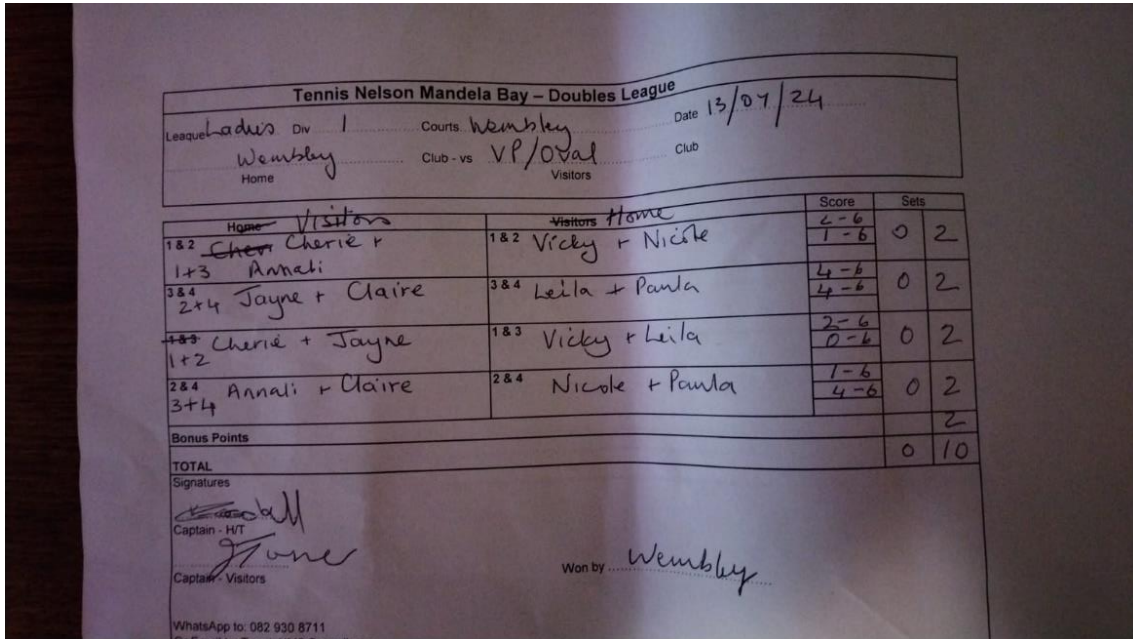 Tennis Nelson Mandela Bay – Doubles League
League Ladies Div 1 Courts Wembley Date 13/07/24
Wembley Club - vs VP/Oval Club
Home Visitors
Home Visitors Visitors Home Score Sets
1 & 2 Cheri Cherie + 1 & 2 Vicky + Nicole 2-6 0 2
1+3 Annali 1-6
3 & 4 Jayne + Claire 3 & 4 Leila + Paula 4-6 0 2
2+4 4-6
1 & 3 Cherie + Jayne 1 & 3 Vicky + Leila 2-6 0 2
1+2 0-6
2 & 4 Annali + Claire 2 & 4 Nicole + Paula 1-6 0 2
3+4 4-6
Bonus Points 2
TOTAL 0 10
Signatures
Captain - H/T
Captain - Visitors
Won by Wembley
WhatsApp to: 082 930 8711